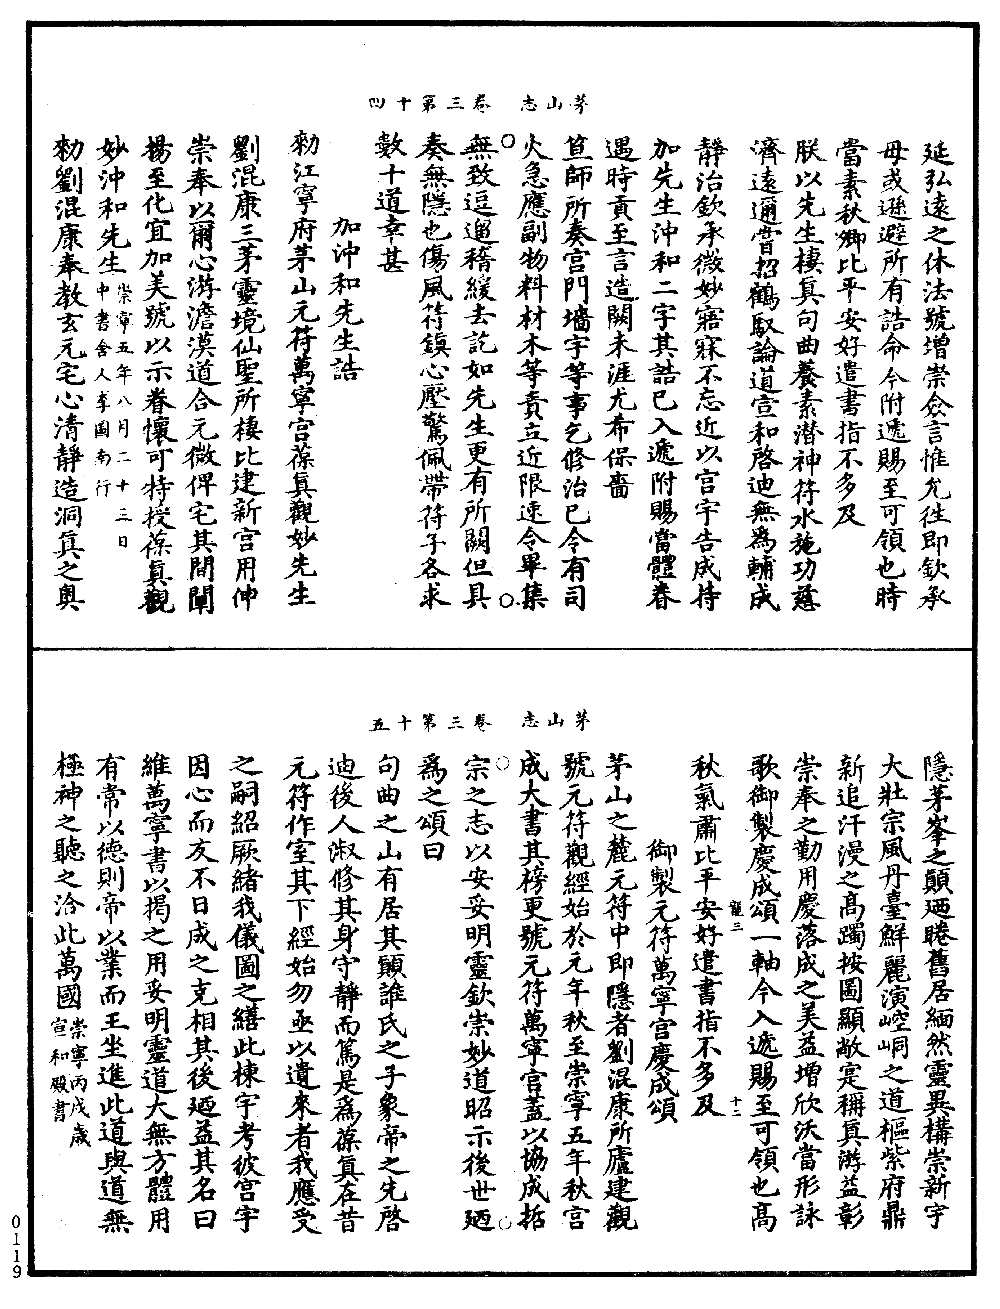 茅山志　卷三第十四
延弘遠之休法號增崇僉言惟允徃即欽承
毋或遜避所有誥命今附遞賜至可領也時
當素秋卿比平安好遣書指不多及
朕以先生棲眞句曲養素潛神符水施功慈
濟遠邇嘗招鶴馭論道宣和啓迪無爲輔成
靜治欽承微妙寤寐不忘近以宮宇告成持
加先生沖和二字其誥已入遞附賜當體眷
遇時貢至言造闕未涯尤希保嗇
笪師所奏宮門墻宇等事乞修治已令有司
火急應副物料材木等責立近限速令畢集
無致逗遛稽緩去訖如先生更有所闕但具
奏無隱也傷風符鎮心壓驚佩帶符子各求
數十道幸甚
加沖和先生誥
勑江寧府茅山元符萬寧宮葆眞觀妙先生
劉混康三茅靈境仙聖所棲比建新宮用伸
崇奉以爾心游澹漠道合元微俾宅其間闡
揚至化宜加美號以示眷懷可特授葆眞觀
妙沖和先生崇寧五年八月二十三日中書舍人李圖南行
勑劉混康奉教玄元宅心清靜造洞眞之奧
茅山志　卷三第十五
隱茅峯之顛廼睠舊居緬然靈異構崇新宇
大壯宗風丹臺鮮麗演崆峒之道樞紫府鼎
新追汗漫之高躅按圖顯敞寔稱眞游益彰
崇奉之勤用慶落成之美益增欣沃當形詠
歌御製慶成頌一軸今入遞賜至可領也高
龍三　十二
秋氣肅比平安好遣書指不多及
御製元符萬寧宮慶成頌
茅山之麓元符中即隱者劉混康所廬建觀
號元符觀經始於元年秋至崇寧五年秋宮
成大書其榜更號元符萬寧宮蓋以協成哲
宗之志以安妥明靈欽崇妙道昭示後世廼
爲之頌曰
句曲之山有居其顛誰氏之子象帝之先啓
迪後人淑修其身守靜而篤是爲葆眞在昔
元符作室其下經始勿亟以遺來者我應受
之嗣紹厥緒我儀圖之繕此棟宇考彼宮宇
因心而友不日成之克相其後廼益其名曰
維萬寧書以揭之用妥明靈道大無方體用
有常以德則帝以業而王坐進此道與道無
極神之聽之洽此萬國崇寧丙戌歲宣和殿書
0119